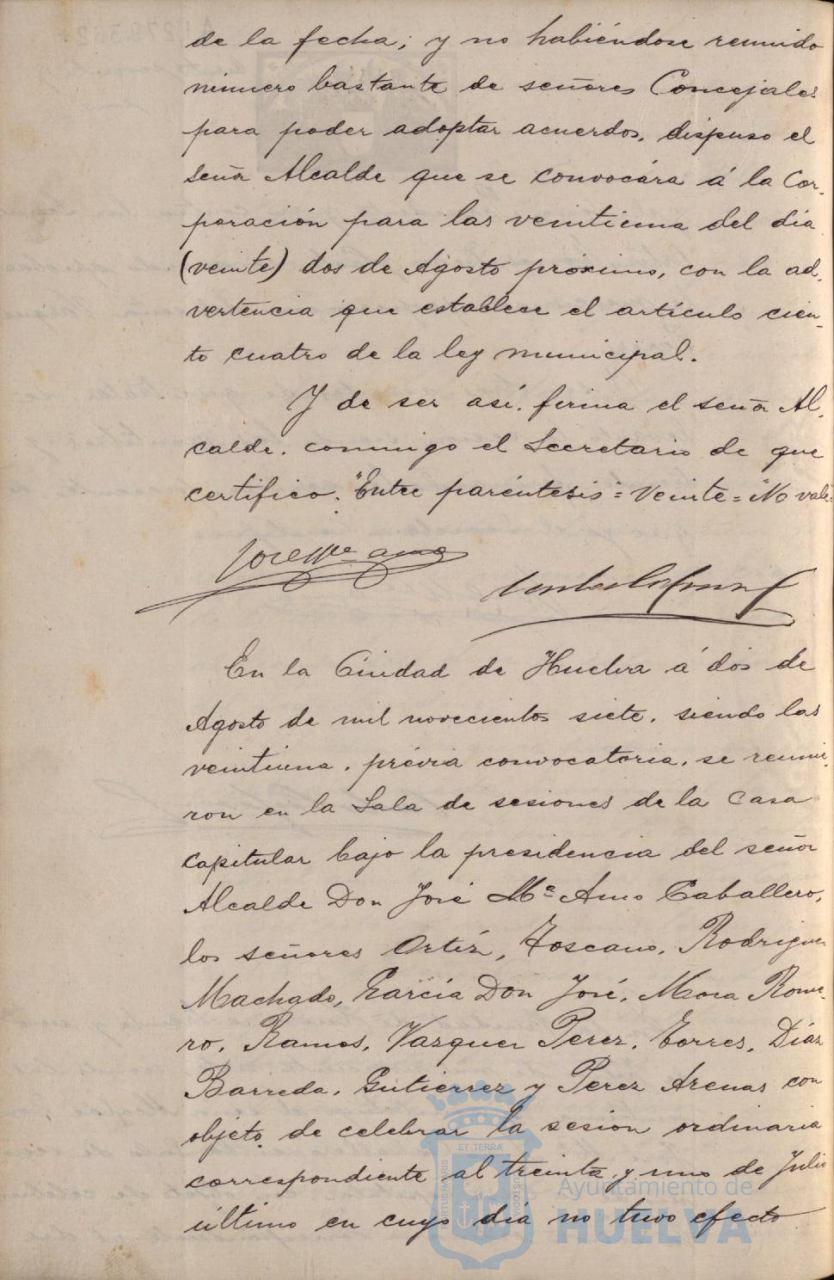 de la fecha; y no habiéndose reunido
número bastante de señores Concejales
para poder adoptar acuerdos, dispuso el
señor Alcalde que se convocára á la Cor-
poración para las veintiuna del dia
(veinte) dos de Agosto próximo, con la ad-
vertencia que establece el artículo cien-
to cuatro de la ley municipal.
Y de ser así, firma el señor Al-
calde, conmigo el Secretario de que
certifico. "Entre paréntesis" = Veinte = "No vale =
José Mª Amo
En la Ciudad de Huelva á dos de
Agosto de mil novecientos siete, siendo las
veintiuna, prévia convocatoria, se reunie-
ron en la Sala de sesiones de la Casa
capitular bajo la presidencia del señor
Alcalde Don José Mª Amo Caballero,
los señores Ortíz, Toscano, Rodriguez
Machado, García Don José, Mora Rome-
ro, Ramos, Vazquez Perez, Torres, Díaz
Barreda, Gutierrez y Perez Arenas con
objeto de celebrar la sesion ordinaria
correspondiente al treinta y uno de Julio
último en cuyo día no tuvo efecto
ET TERRÆ
Ayuntamiento de
HUELVA